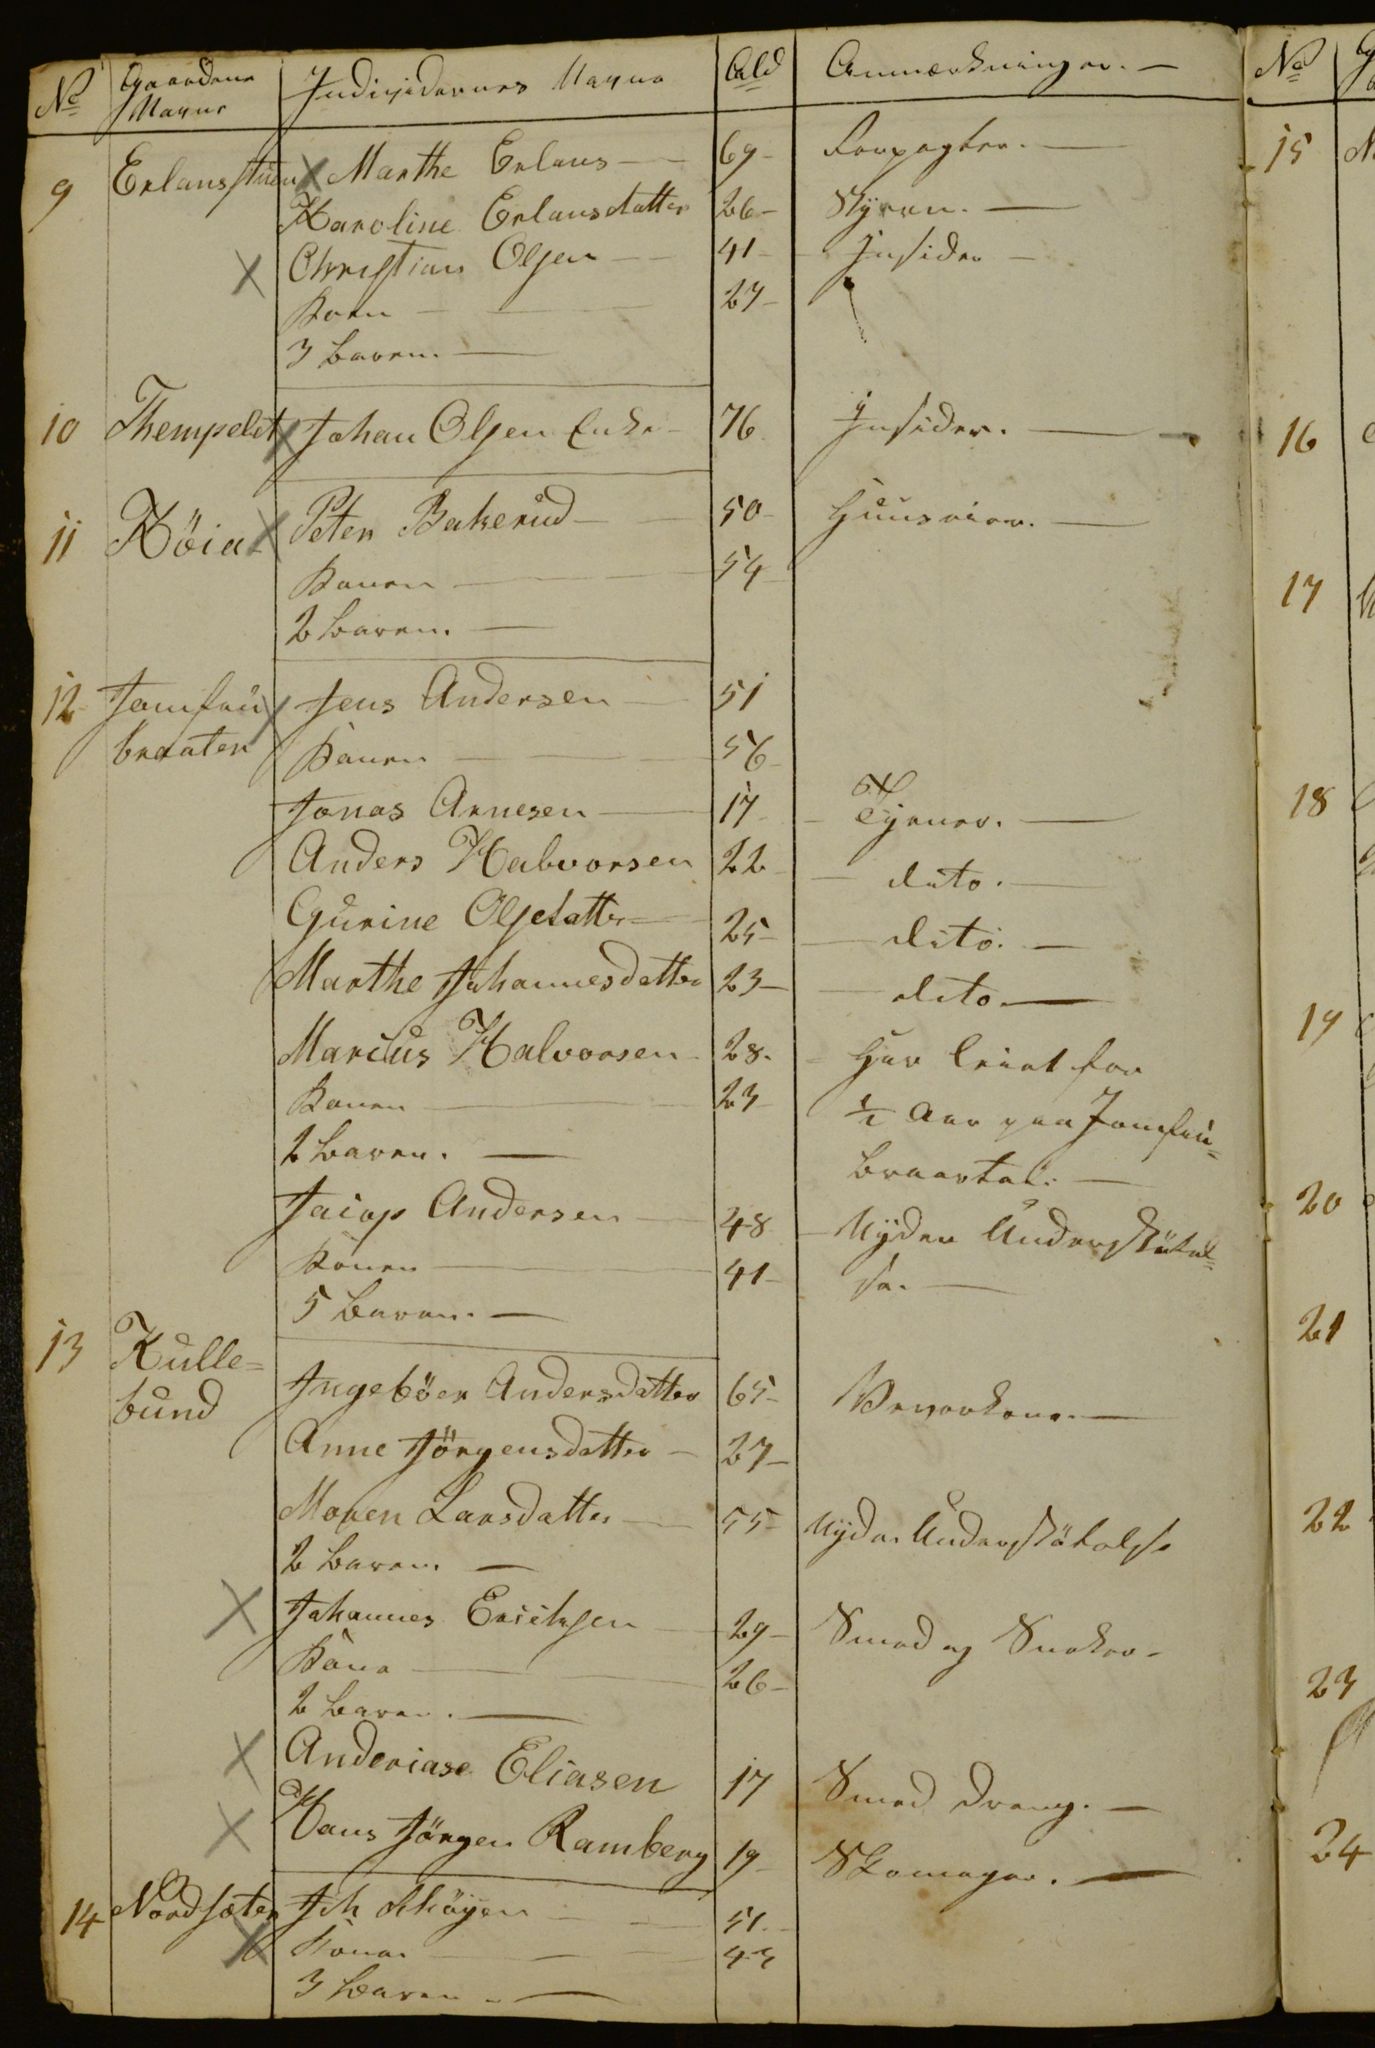 No Gaardens Navne Individernes Navne Ald Anmærkninger. —
9 Erlansstuen X Marthe Erlans — 69 - Forpagter. —
Karoline Erlansdatter 26 - Styren. —
X Christian Olsen — 41 - Insider —
Konen — 27 -
3 børen. —
10 Thempelet X Johan Olsen Enke - 76 Insider. —
11 Röia X Peter Bakerud — 50 - Huuseier. —
Konen — 54
2 børen. —
12 Jomfrú X Jens Andersen — 51
braaten Konen — 56 -
Jonas Arnesen — 17 - Tjener. —
Anders Halvorsen 22 - dito. —
Gurine Olsdatter — 25 - dito. —
Marthe Johannesdatter 23 — dito —
Marcus Halvorsen 28. - Har leiet for
Konen — 23 - ½ Aar paa Jomfru-
2 børen. — braaten. —
Jacop Andersen — 48 - Nyder Understøtel-
Konen — 41 - se. —
5 børen. —
13 Kulle=
bund Ingebör Andersdatter 65 -
Anne Jörgensdatter — 27 —
Maren Larsdatter — 55 - Nyder Understøtelse
2 børen. —
X Johannes Erichsen — 29 - Smed og Sneker -
Kone — 26 -
2 børen. —
X Anderiase Eliasen 17 Smed Dreng. —
X Hans Jörgen Ramberg 19 - Skomager. —
14 Nordsæter Joh — 51. -
X Konen — 43
3 børen —
No
15
16
17
18
19
20
21
22
23
24